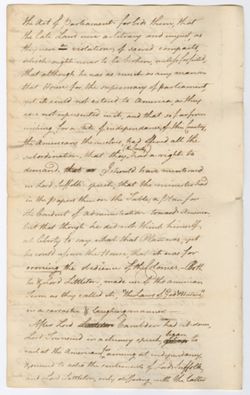 the Act of Parliament forbids them, that
the late Laws were arbitrary and unjust as
they were violations of sacred compacts,
which ought never to be broken,
that although he was as much as any man in
that House for the supremacy of parliament
yet it could not extend to America, as they
are not represented in it, and that so far from
wishing for a state of independency of this Country,
the Americans themselves, had offered all the
subordination, that they had a right to
demand, I should have mentioned
in Lord Suffolk's speech, that the ministry had
in the papers then on the Table, a Plan for
the Conduct of administration toward America
but that though he did not think himself
at liberty to say what that Plan was, yet
he could assure the House, that it was for
the obedience of the Colonies. Both
he & Lord Littleton, made use of the american
Term as they called it "the Laws of God & Nature"
in a sarcastic & laughing manner
After Lord Camden had set down
Lord Townsend in a clumsy speech, began to
rail at the Americans, as aiming at independency
& seemed to echo the sentiments of Lords Suffolk
and Lord Littleton, only differing with the latter